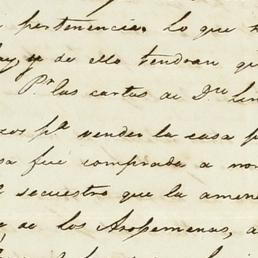 pertenencia. Lo que
y de ello tendran
Pr. las cartas de Dn.
pa. vender la casa
fue comprada a
secuestro que la
de los Aropemenas, a